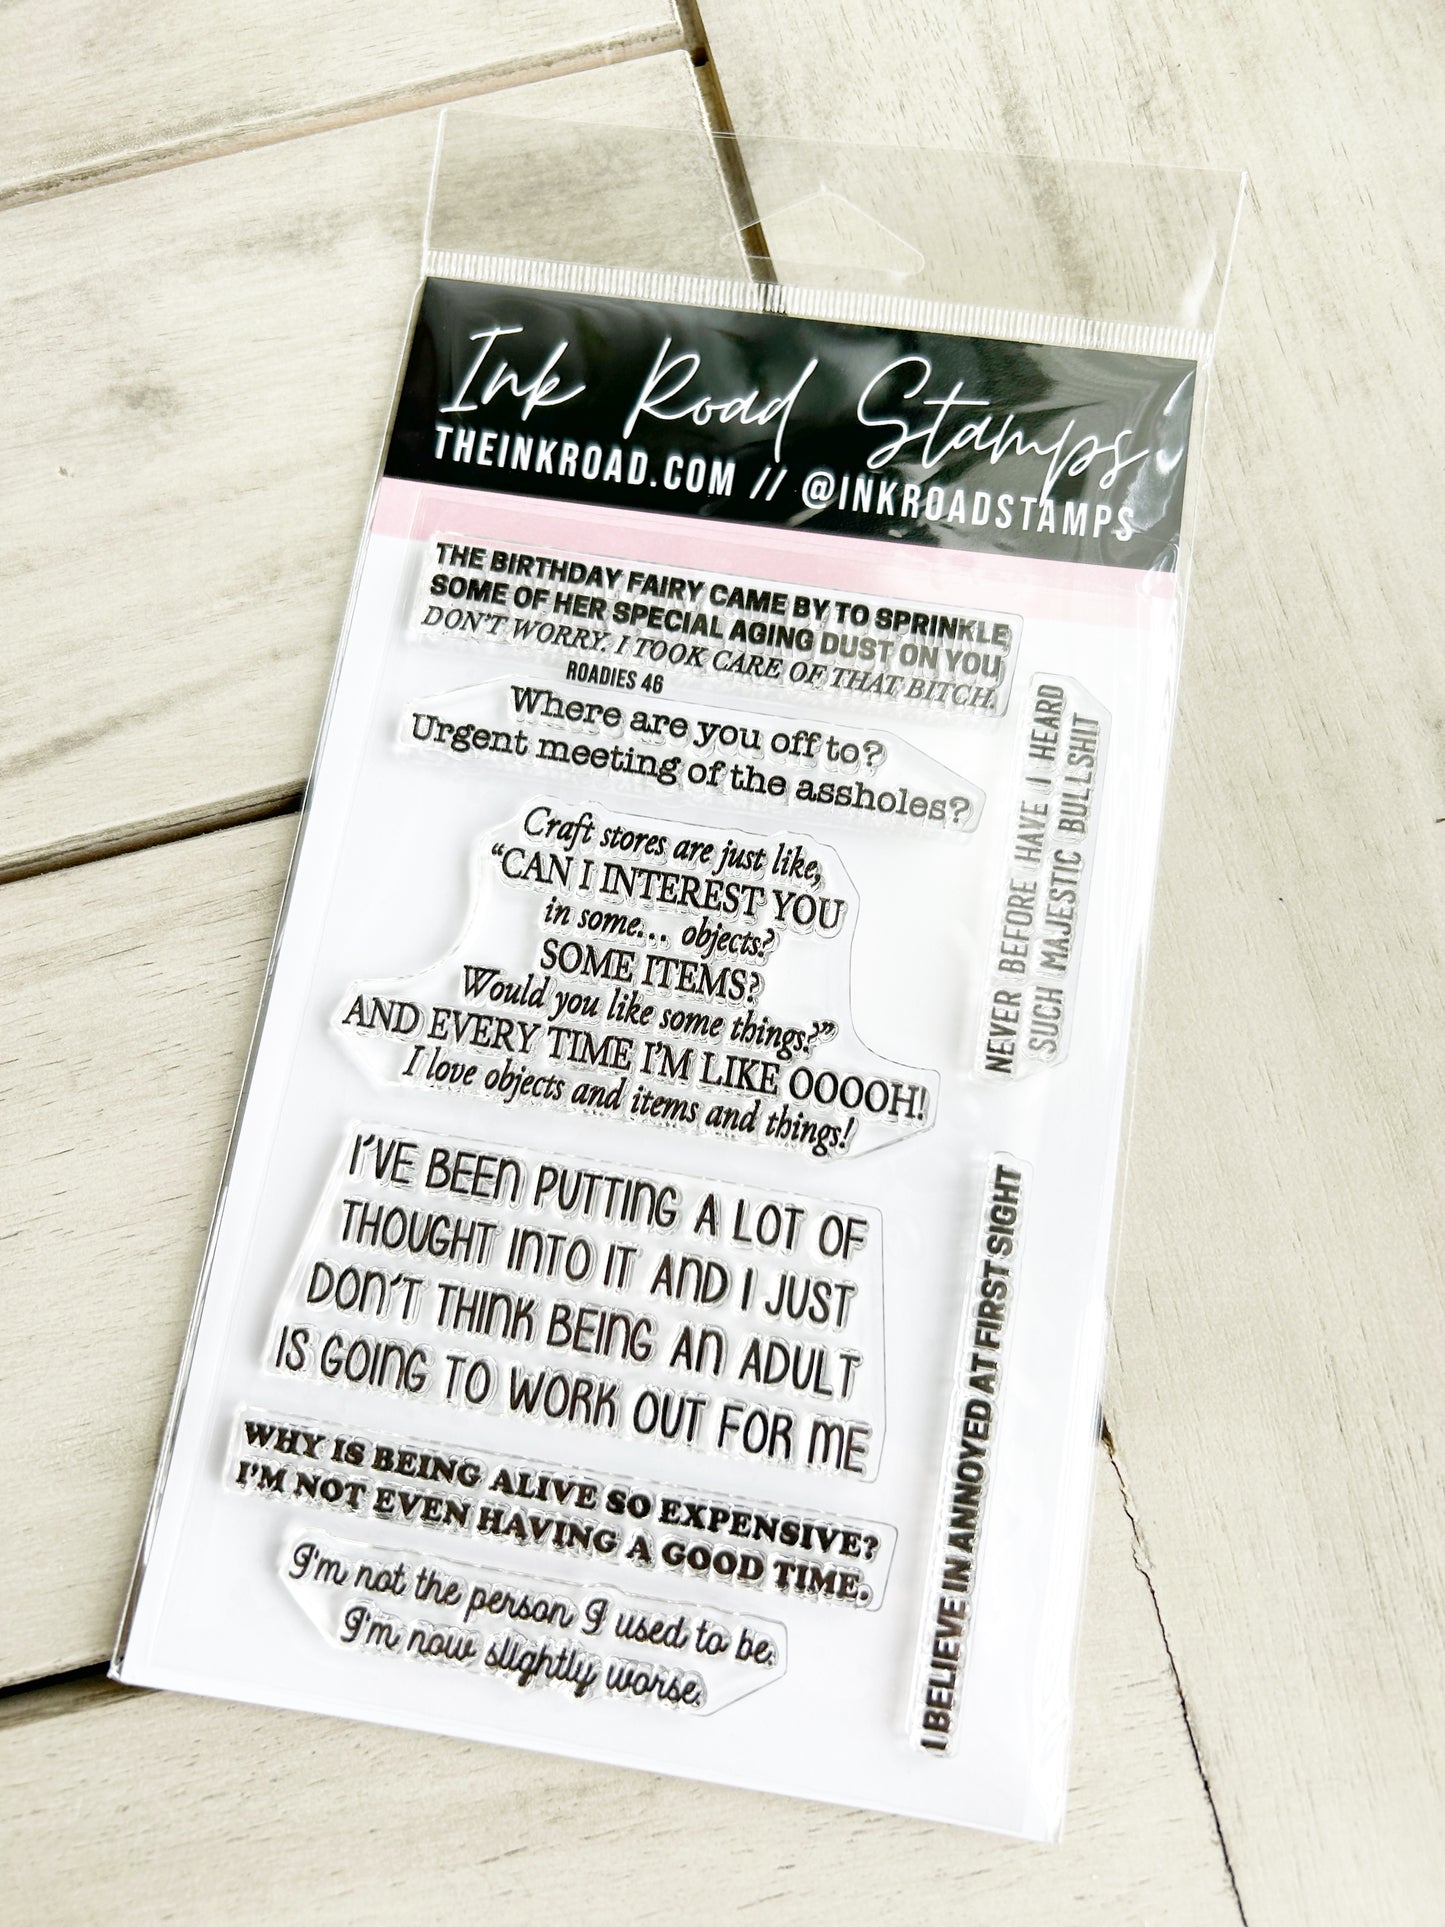 Ink Road Stamps
THEINKROAD.COM // @INKROADSTAMPS
THE BIRTHDAY FAIRY CAME BY TO SPRINKLE
SOME OF HER SPECIAL AGING DUST ON YOU
DON'T WORRY. I TOOK CARE OF THAT BITCH.
ROADIES 46
Where are you off to?
Urgent meeting of the assholes?
Craft stores are just like,
“CAN I INTEREST YOU
in some... objects?
SOME ITEMS?
Would you like some things?”
AND EVERY TIME I'M LIKE OOOOH!
I love objects and items and things!
I'VE BEEN PUTTING A LOT OF
THOUGHT INTO IT AND I JUST
DON'T THINK BEING AN ADULT
IS GOING TO WORK OUT FOR ME
WHY IS BEING ALIVE SO EXPENSIVE?
I'M NOT EVEN HAVING A GOOD TIME.
I'm not the person I used to be.
I'm now slightly worse.
NEVER BEFORE HAVE I HEARD
SUCH MAJESTIC BULLSHIT
I BELIEVE IN ANNOYED AT FIRST SIGHT